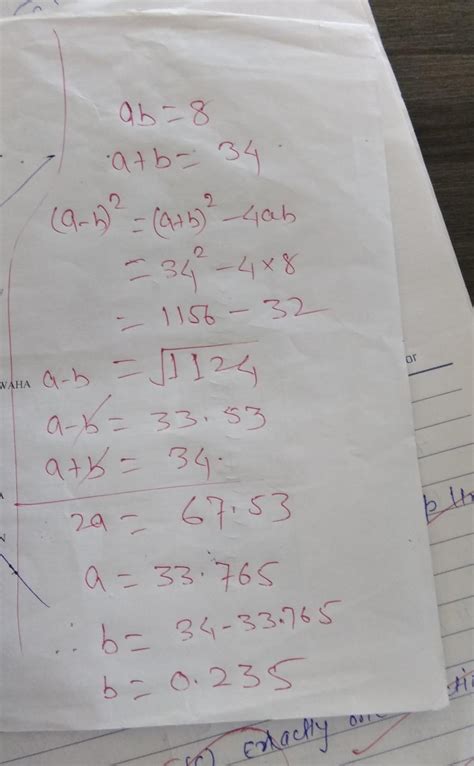 ab = 8
a+b = 34
(a-b)² = (a+b)² - 4ab
= 34² - 4×8
= 1156 - 32
a-b = √1124
a-b = 33.53
a+b = 34.
2a = 67.53
a = 33.765
∴ b = 34-33.765
b = 0.235
WAHA
or
exactly